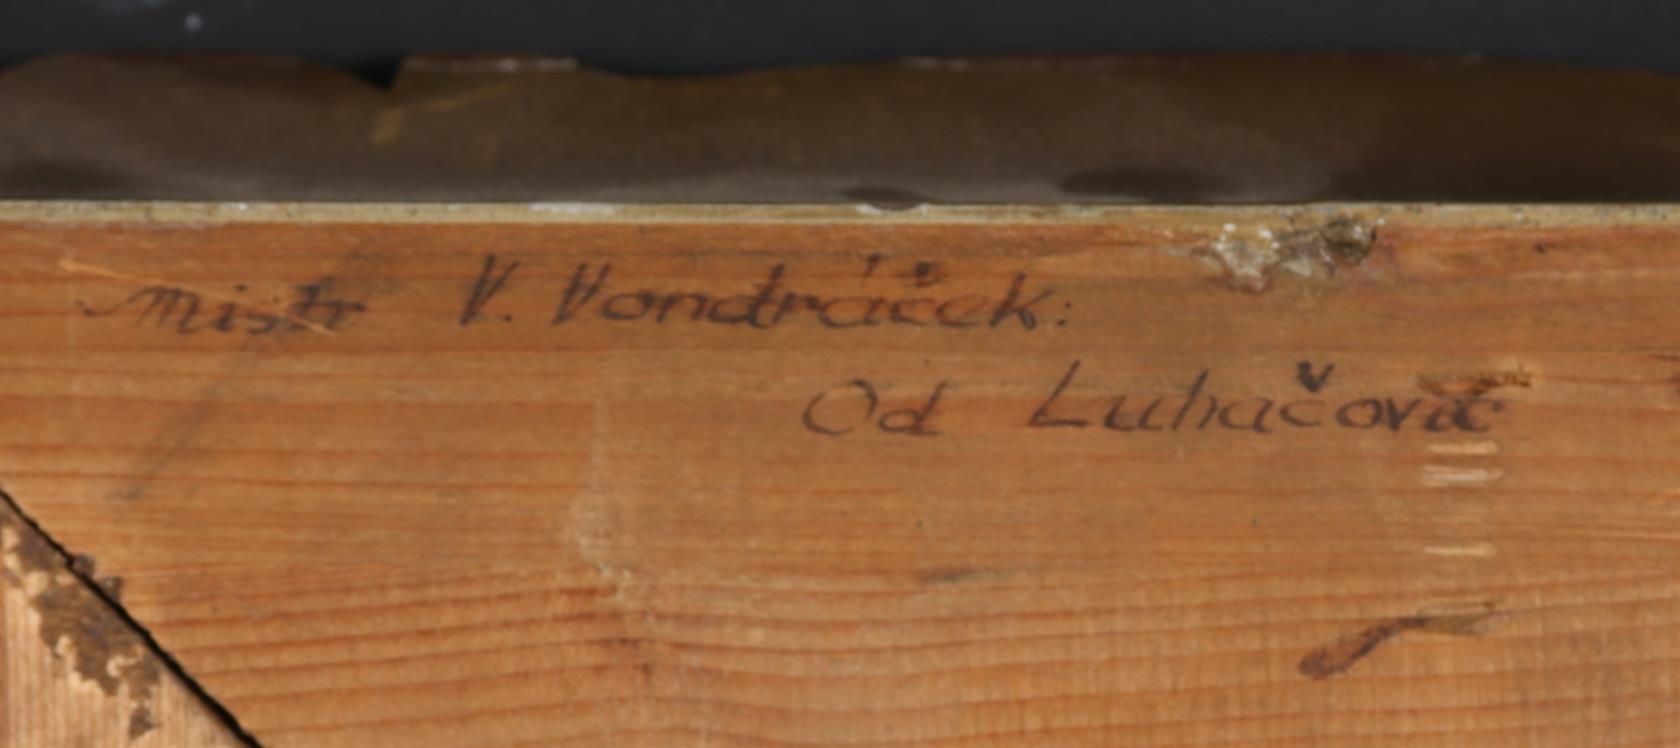 mistr V. Vondráček:
Od Luhačovic